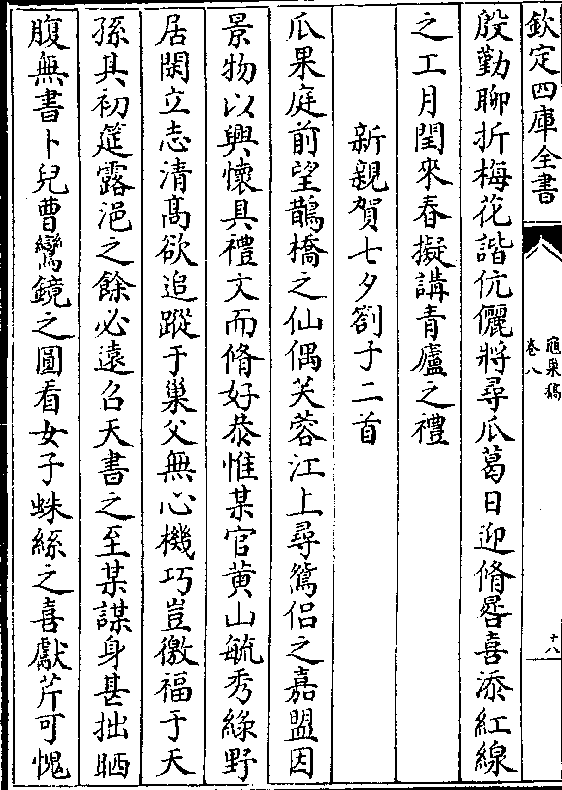 欽定四庫全書
巵巢稿
卷八
十八
殷勤聊折梅花諧伉儷將尋瓜葛日迎脩晷喜添紅線
之工月閏來春擬講青廬之禮
新親賀七夕劄子二首
瓜果庭前望鵲橋之仙偶芙蓉江上尋鴛侶之嘉盟因
景物以興懷具禮文而脩好恭惟某官黄山毓秀綠野
居閑立志清髙欲追蹤于巢父無心機巧豈徼福于天
孫其初筵露浥之餘必遠召天書之至某謀身甚拙晒
腹無書卜兒曹鸞鏡之圖看女子蛛絲之喜獻芹可愧